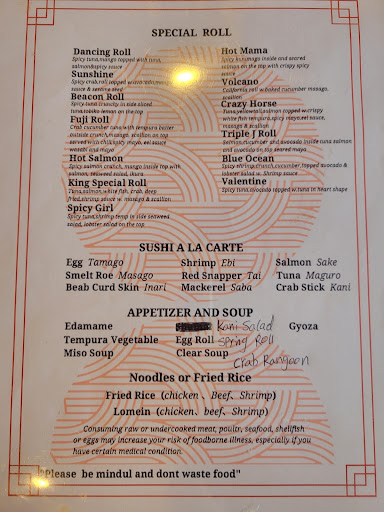 SPECIAL ROLL
Dancing Roll
Spicy tuna,mango topped with tuna,
salmon&spicy sauce
Sunshine
Spicy crab,roll topped w/
sauce & sesame seed
Beacon Roll
Spicy tuna crunchy in side sliced
tuna,tobiko lemon on the top
Fuji Roll
Crab cucumber tuna with tempura batter
outside crunch,masago, scallion on top
served with chili&spicy mayo, eel sauce
wasabi and mayo
Hot Salmon
Spicy salmon crunch, mango inside with
salmon, seaweed salad, ikura
King Special Roll
Tuna,salmon,white fish, crab, deep
fried,shrimp sauce w. masago & scallion
Spicy Girl
Spicy tuna,shrimp temp in side seaweed
salad, lobster salad on the top
Hot Mama
Spicy kanimago inside and seared
salmon on the top with crispy spicy
sauce
Volcano
California roll w.baked cucumber masago,
scallion
Crazy Horse
Tuna,yellowtail,salmon topped w.crispy
white fish tempura,spicy mayo,eel sauce,
masago & scallion
Triple J Roll
Salmon,cucumber and avocado inside tuna salmon
and avocado on top seared mayo
Blue Ocean
Spicy shrimp,crunch,cucumber,topped avocado &
lobster salad w. Shrimp sauce
Valentine
Spicy tuna,avocado tapped w.tuna in heart shape
SUSHI A LA CARTE
Egg Tamago
Shrimp Ebi
Salmon Sake
Smelt Roe Masago
Red Snapper Tai
Tuna Maguro
Beab Curd Skin Inari
Mackerel Saba
Crab Stick Kani
APPETIZER AND SOUP
Edamame
Kani Salad
Gyoza
Tempura Vegetable
Egg Roll
Spring Roll
Miso Soup
Clear Soup
Crab Rangoon
Noodles or Fried Rice
Fried Rice (chicken 、Beef、Shrimp)
Lomein (chicken、beef、Shrimp)
Consuming raw or undercooked meat, poultr, seafood, shelifish
or eggs may increase your risk of foodborne illness, especially if you
have certain medical condition.
"Please be mindul and dont waste food"